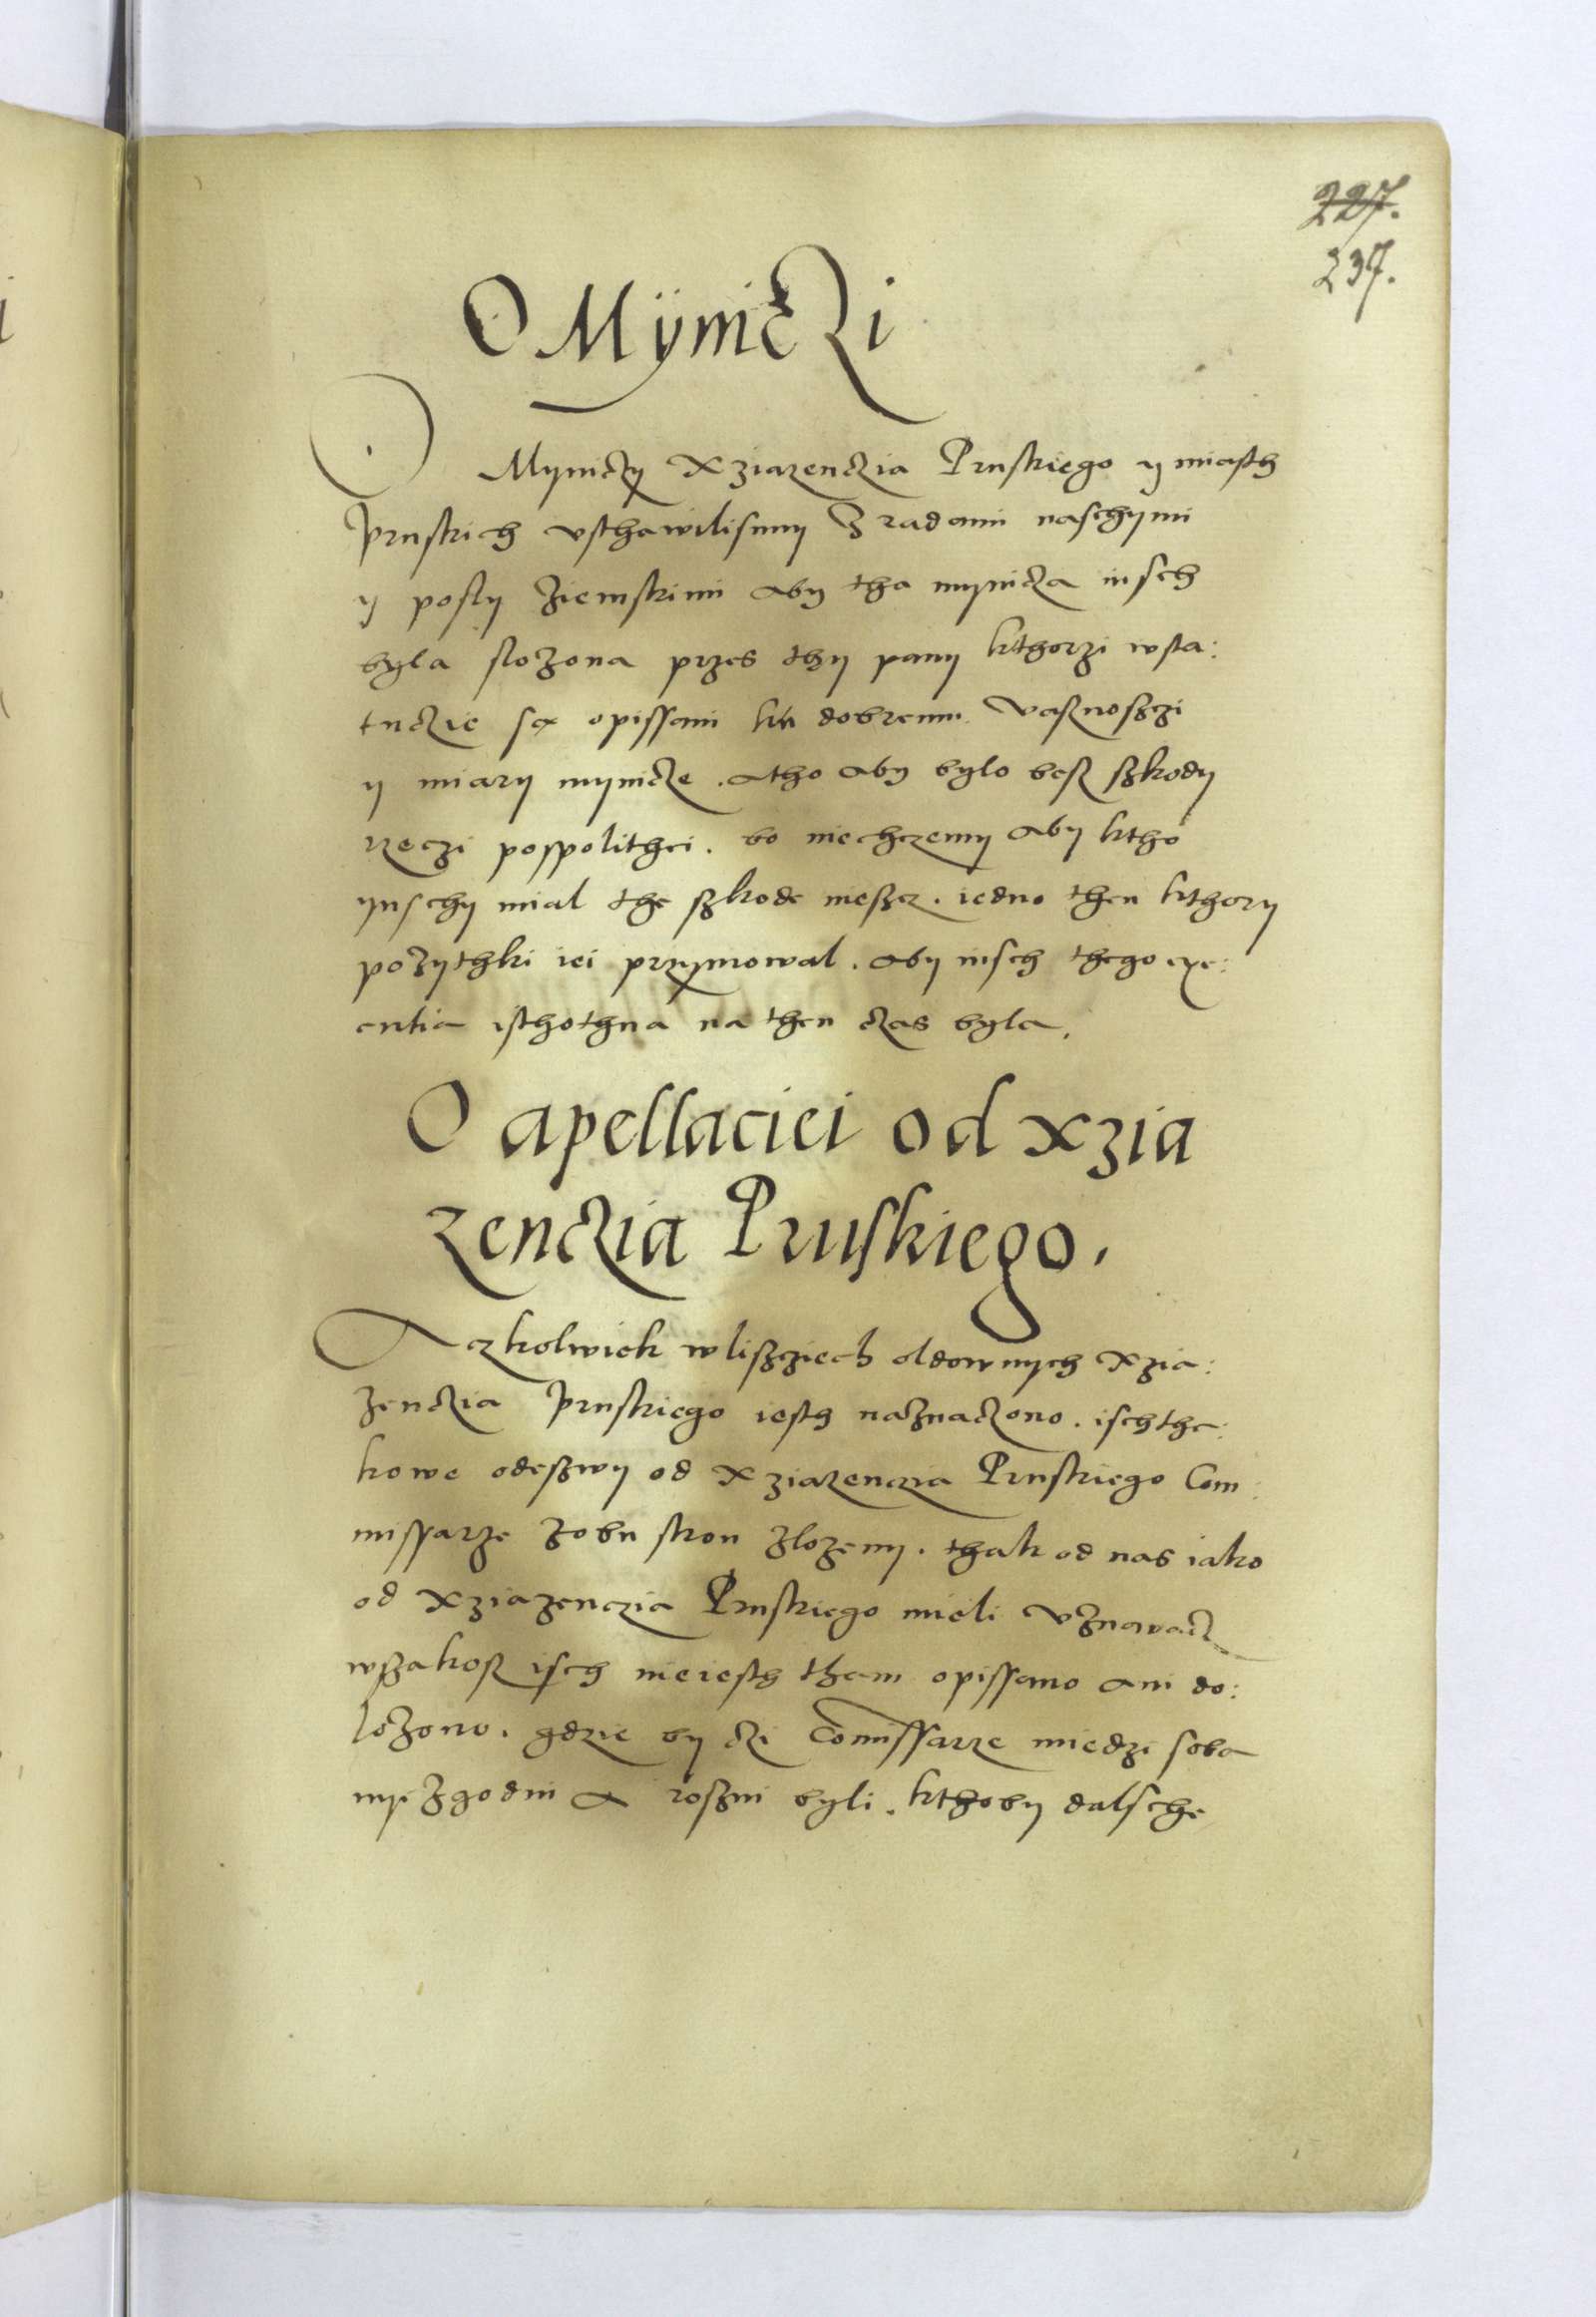 227.
237.
O Mÿniczi
O Myniczy Xziazenczia Pruskiego y miasth
pruskich vsthawilismy Z radami naschymi
y posly Ziemskimi aby tha mynicza insch
byla slozona przes thy pany kthorzi wsta:
tuczie są opissani ku dobremu. Vasznosczi
y miary mynicze. atho aby bylo besz szkody
rzeczi pospolithei. bo niechczemy aby ktho
ynschy mial the szkode nieszcz. iedno then kthory
pozythki iei przymowal. aby insch thego exe:
cutia isthothna na then czas byla.
O apellaciei od xzia
zenczia Pruskiego.
Aczkolwiek wliszcziech oldownych xzia:
zenczia pruskiego iesth naznaczono. isch the:
kowe odeszwy od Xziazenczia Pruskiego Com:
missarze Zobu stron zlozemy. thak od nas iako
od Xziazenczia Pruskiego mieli Vznawacz
wszakosz isch nieiesth tham opissano ani do:
lozono. gdzie by czi Comissarze miedzi soba
nye Zgodni a roszni byli. kthoby dalsche